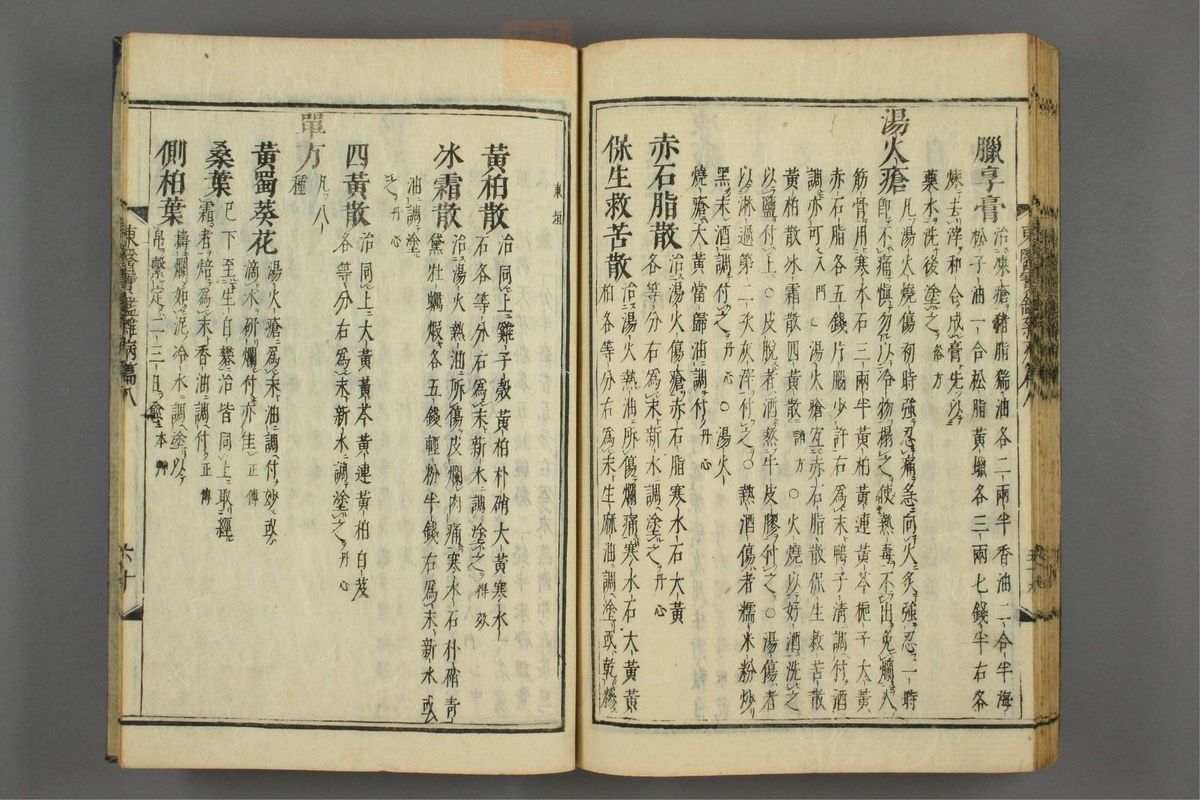 臘享膏 治凍瘡猪脂猯油各二兩半香油二合半海
松子油一合松脂黃蠟各三兩七錢半右各
煉去滓和合成膏先以
藥水洗後塗之 俗方
湯火瘡 凡湯火燒傷初時強忍痛急向火炙強忍一時
即不痛愼勿以冷物搨之使熱毒不出免爛人
筋骨用寒水石三兩半黃柏黃連黃芩梔子大黃
赤石脂各五錢片腦少許右爲末鴨子淸調付酒
調亦可 入門 ○湯火瘡宜赤石脂散保生救苦散
黃柏散冰霜散四黃散 諸方 ○火燒以好酒洗之
以鹽付上○皮脫者酒熬牛皮膠付之○湯傷者
以淋過第二次灰滓付之○熱酒傷者糯米粉炒
黑末酒調付之 丹心 ○湯火
燒瘡大黃當歸油調付 丹心
赤石脂散 治湯火傷瘡赤石脂寒水石大黃
各等分右爲末新水調塗之 丹心
保生救苦散 治湯火熱油所傷爛痛寒水石大黃黃
柏各等分右爲末生麻油調塗或乾糝
東垣
黃柏散 治同上雞子殼黃柏朴硝大黃寒水
石各等分右爲末新水調塗之 得效
冰霜散 治湯火熱油所傷皮爛肉痛寒水石朴硝靑
黛牡蠣煆各五錢輕粉半錢右爲末新水或
油調塗
之 丹心
四黃散 治同上大黃黃芩黃連黃柏白芨
各等分右爲末新水調塗之 丹心
單方 凡八
種
黃蜀葵花 湯火瘡爲末油調付妙或
滴水硏爛付亦佳 正傳
桑葉 巴下至生白礬治皆同上取經
霜者焙爲末香油調付 正傳
側柏葉 擣爛如泥冷水調塗以
帛繫定二三日愈 本草
東醫寶鑑雜病篇八
六十